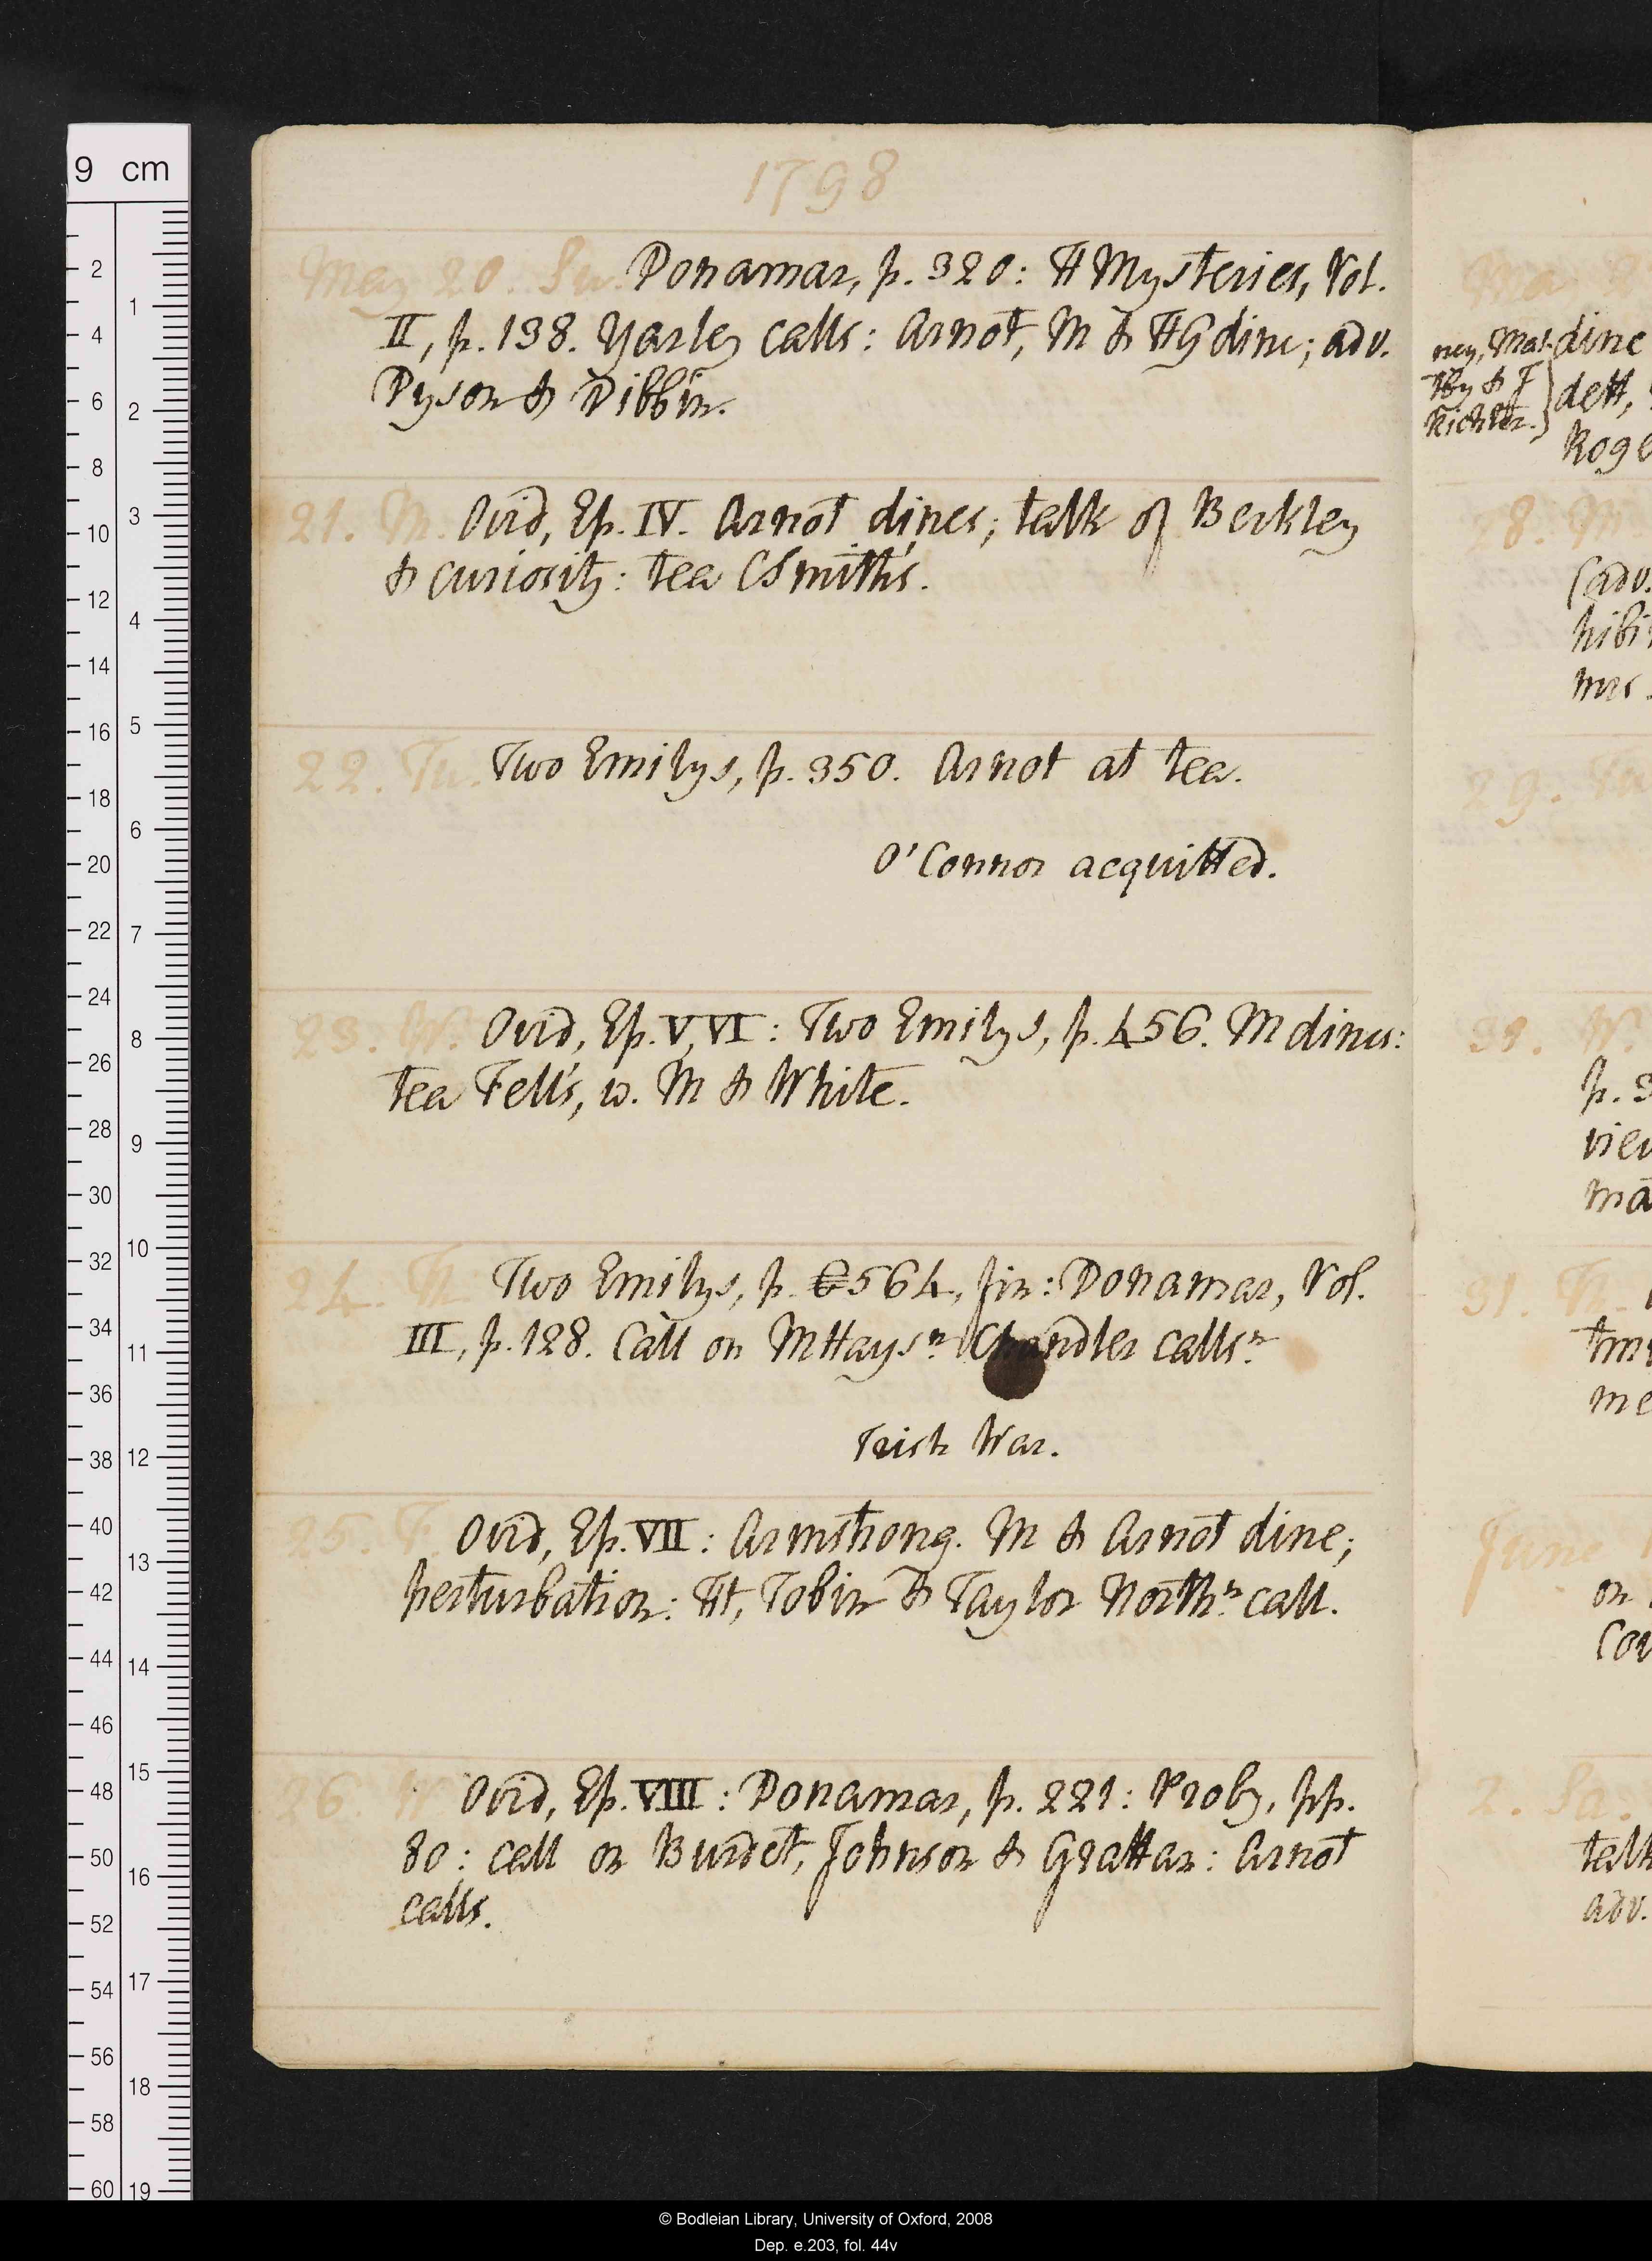 1798
May 20. Su. Donamar, p. 320: H Mysteries, Vol.
II, p. 138. Yarley calls: Arnot, M & HG dine; adv.
Dyson & Dibbin.
21. M. Ovid, Ep. IV. Arnot dines; talk of Berkley
& curiosity: tea CSmith's.
22. Tu. Two Emilys, p. 350. Arnot at tea.
O'Connor acquitted.
23. W. Ovid, Ep. V, VI: Two Emilys, p. 456. M dines:
tea Fell's, w. M & White.
24. Th. Two Emilys, p. 564, fin: Donamar, Vol.
III, p. 128. Call on MHays n Chandler calls n
Irish War.
25. F. Ovid, Ep. VII: Armstrong. M & Arnot dine;
perturbation: Ht, Tobin & Taylor North.n call.
26. Ovid, Ep. VIII: Donamar, p. 221: Proby, pp.
80: call on Burdet, Johnson & Grattan: Arnot
calls.
ney, Mal-
tby & J
Richter.
dine
dett,
Roge
28. M.
(adv.
hibi
mrs
29. Tu
W.
p. 3
view
ma
31. Th.
me
June
on
Cou
2. Sa.
talk
adv.
9 cm
2
4
6
8
10
12
14
16
18
20
22
24
26
28
30
32
34
36
38
40
42
44
46
48
50
52
54
56
58
60
1
2
3
4
5
6
7
8
9
10
11
12
13
14
15
16
17
18
19
© Bodleian Library, University of Oxford, 2008
Dep. e.203, fol. 44v